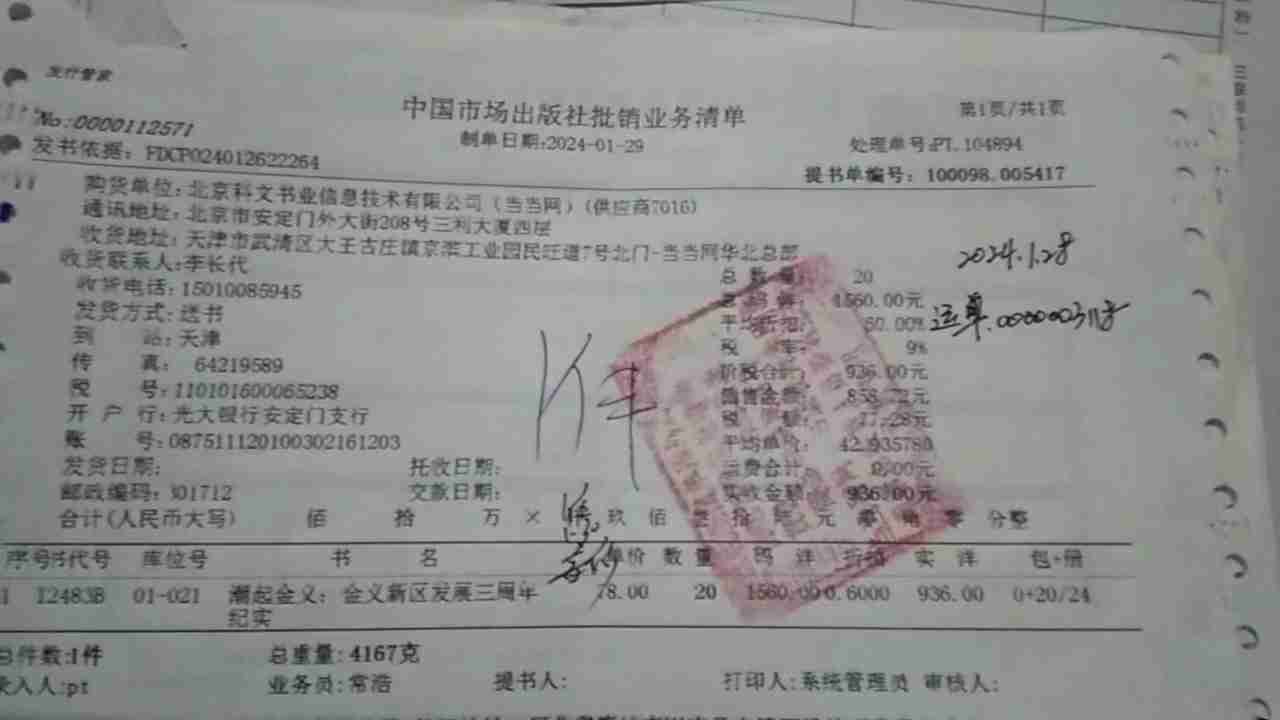 发行管家
中国市场出版社批销业务清单
第1页/共1页
No:0000112571
制单日期:2024-01-29
处理单号:PT.104894
发书依据: FDCP024012622264
提书单编号: 100098.005417
购货单位:北京科文书业信息技术有限公司(当当网)(供应商7016)
通讯地址:北京市安定门外大街208号三利大厦四层
收货地址:天津市武清区大王古庄镇京滨工业园民旺道7号北门-当当网华北总部
收货联系人:李长代
总数量: 20
2024.1.28
收货电话:15010085945
总码洋: 1560.00元
发货方式:送书
平均折扣: 60.00%
运单.
到 站:天津
税 率: 9%
传 真: 64219589
价税合计: 936.00元
税 号:110101600065238
销售金额: 858.72元
开 户 行:光大银行安定门支行
税 额: 77.28元
账 号:08751112010030216​1203
平均单价: 42.935780
1件
发货日期:
托收日期:
运费合计: 0.00元
邮政编码:301712
交款日期:
实收金额: 936.00元
合计(人民币大写) 佰 拾 万 × 仟 玖 佰 叁 拾 陆 元 零 角 零 分整
序号 书代号 库位号 书 名 单价 数量 码 洋 折扣 实 洋 包+册
1 I2483B 01-021 潮起金义: 金义新区发展三周年 78.00 20 1560.00 0.6000 936.00 0+20/24
纪实
总件数:1件
总重量: 4167克
录入人:pt
业务员:常浩
提书人:
打印人:系统管理员
审核人: